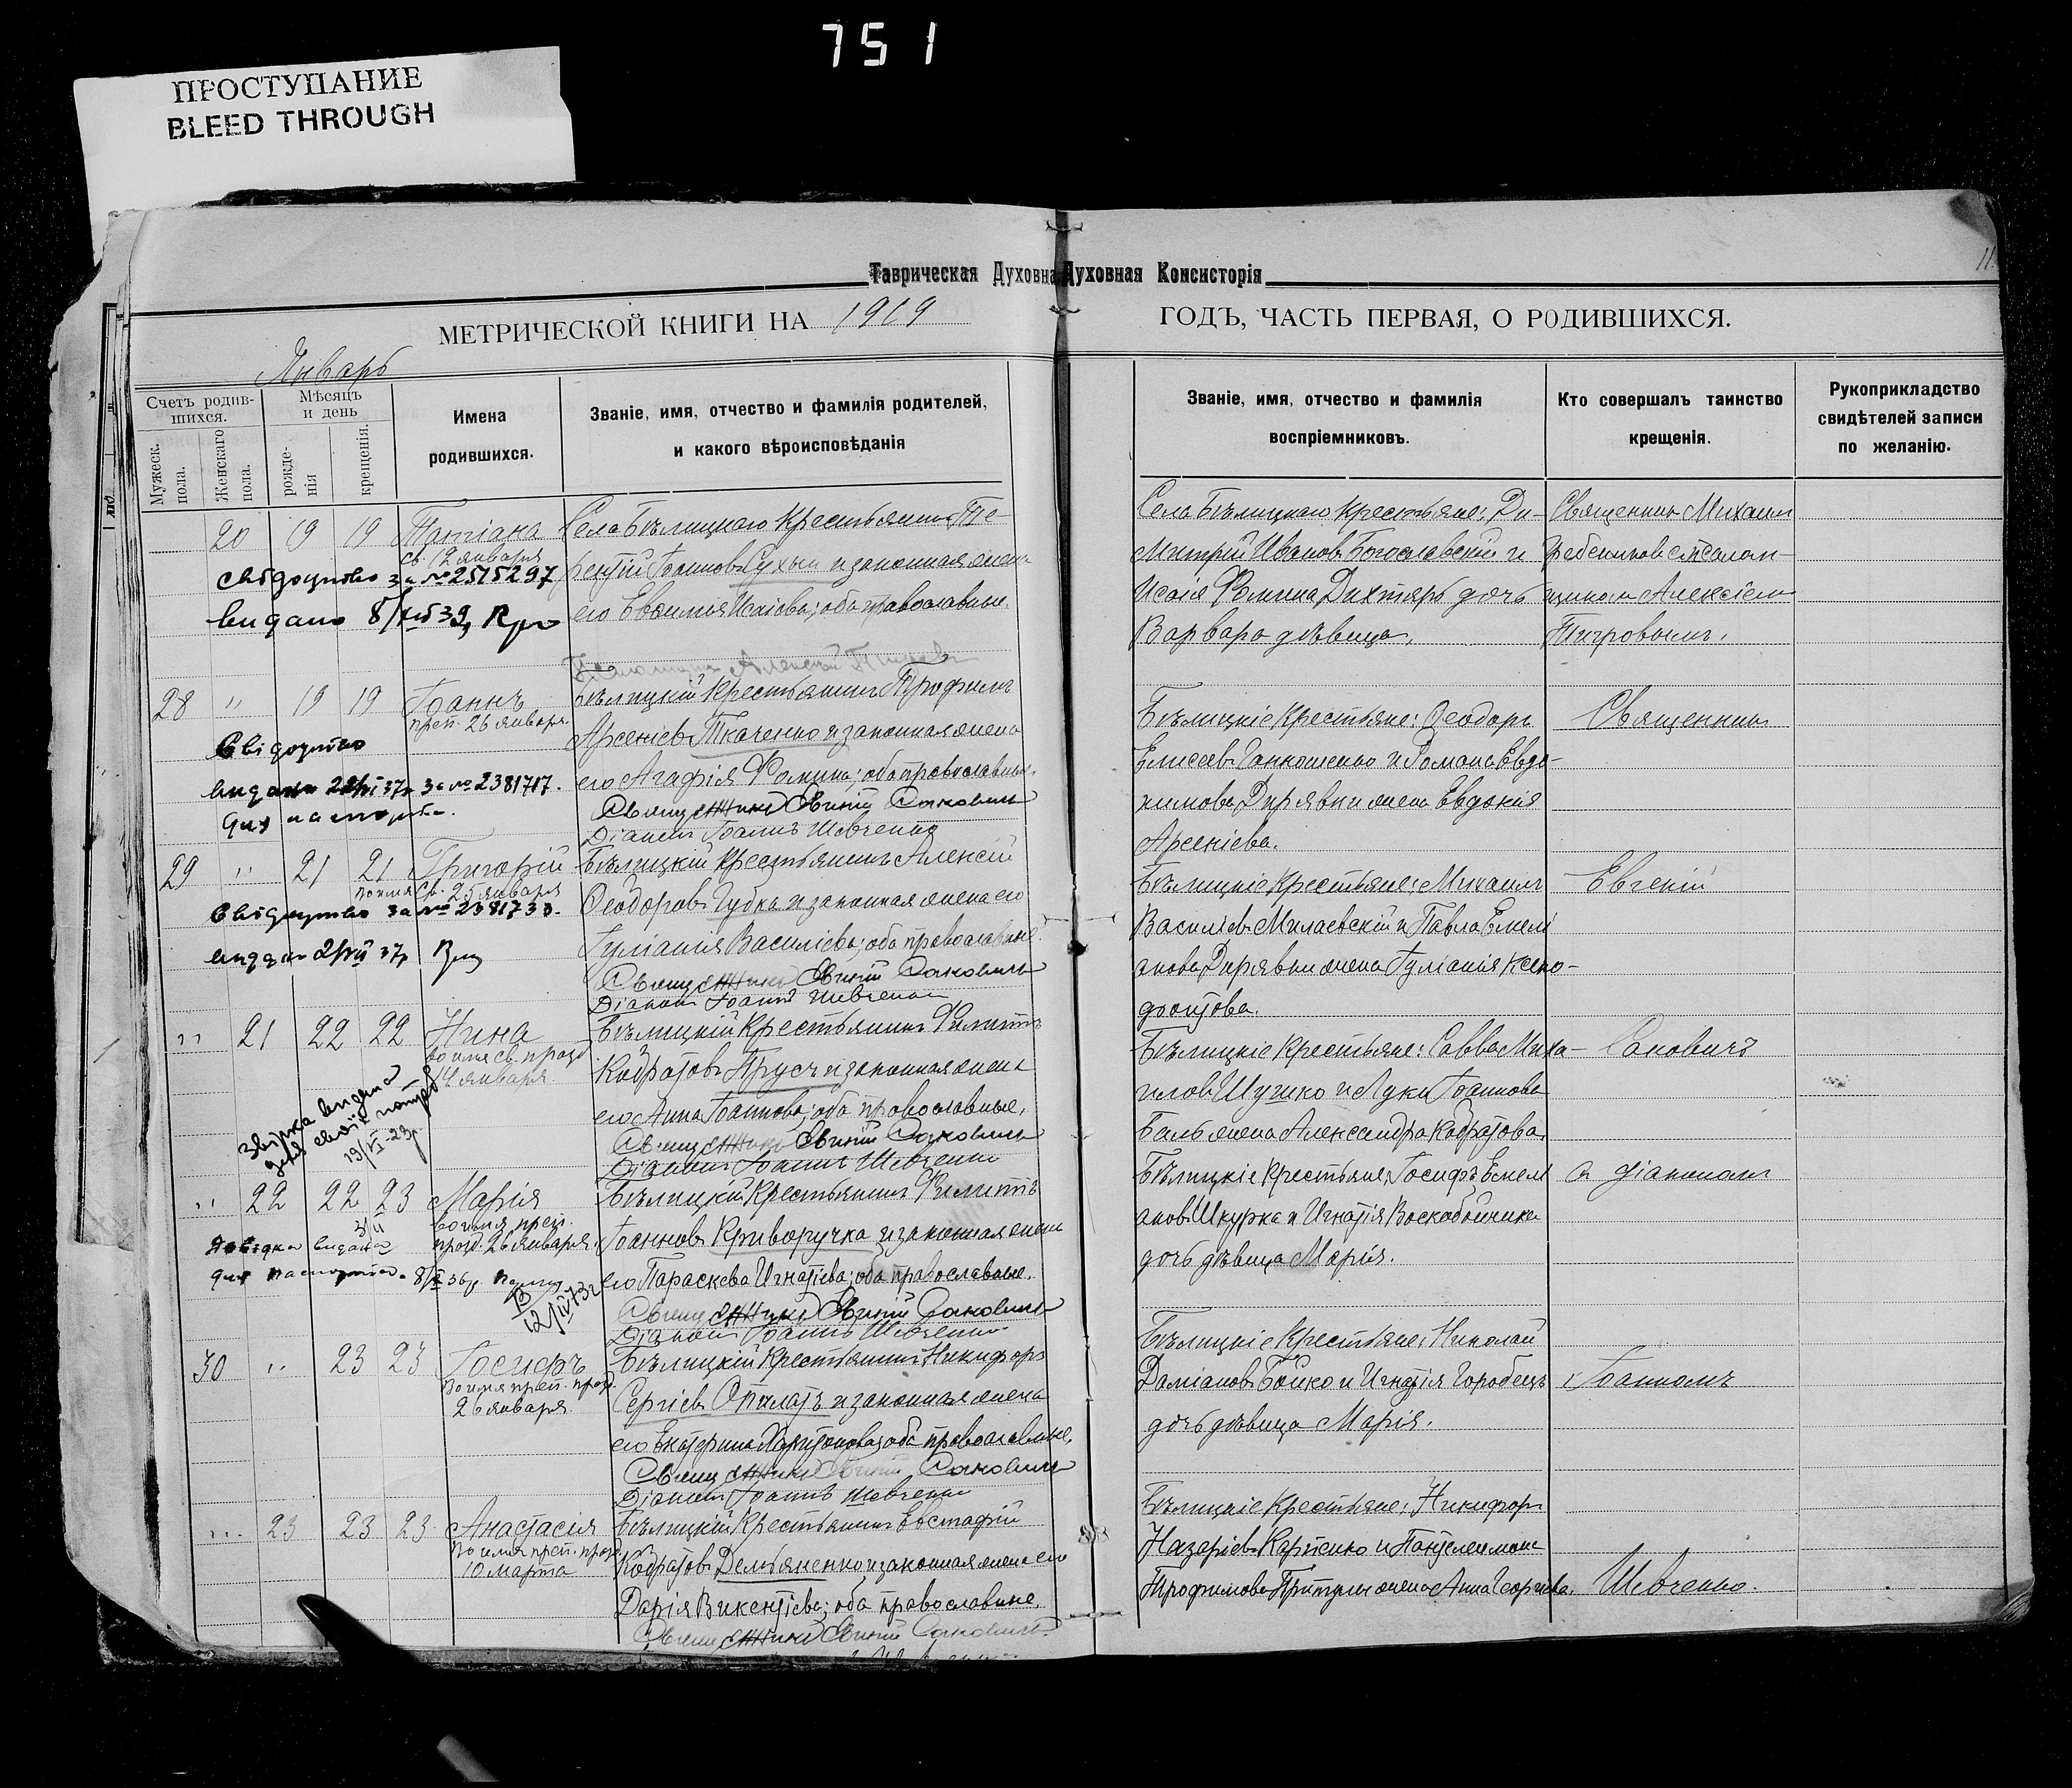 751
ПРОСТУПАНИЕ
BLEED THROUGH
Таврическая Духовна Духовная Консисторія
МЕТРИЧЕСКОЙ КНИГИ НА 1919 ГОДЪ, ЧАСТЬ ПЕРВАЯ, О РОДИВШИХСЯ.
Январь
Счетъ родив-
шихся.
Мужеск. пола.
Женскаго пола.
Мѣсяцъ
и день
рожде-
нія
крещенія.
Имена
родившихся.
Званіе, имя, отчество и фамилія родителей,
и какого вѣроисповѣданія
Званіе, имя, отчество и фамилія
воспріемниковъ.
Кто совершалъ таинство
крещенія.
Рукоприкладство
свидѣтелей записи
по желанію.
20 19 19 Татіана
св. 12 января
свідоцтво за № 2515297
видано
Села Бѣлицкаго крестьянинъ Те-
рентій Іоанновъ Сухын и законная жена
его Евфимія Исаіева; оба православные.
Села Бѣлицкаго крестьяне: Ди-
митрій Ивановъ Богославскій и
Исаія Фомина Дихтярь дочь
Варвара дѣвица.
Священник Михаил
Гребенников с псалом-
щиком Алексіем
Тигровымъ.
28 " 19 19 Іоаннъ
преп. 26 января
Свідоцтво
видано 37р за № 2381717.
для паспорта.
Бѣлицкій крестьянинъ Трофимъ
Арсеніевъ Ткаченко и законная жена
его Агафія Фомина; оба православные.
Священникъ Евгеній Саковичъ
Діаконъ Іоаннъ Шевченко
Бѣлицкіе крестьяне: Феодоръ
Елисеевъ Ганкошенко и Романа Евдо-
кимова Дирявки жена Евдокія
Арсеніева.
Священник
29 " 21 21 Григорій
во имя св. 25 января
Свідоцтво за № 2381733.
видано 37р
Бѣлицкій крестьянинъ Алексій
Феодоровъ Губка и законная жена его
Іуліанія Василіева; оба православные.
Священникъ Евгеній Саковичъ
Діаконъ Іоаннъ Шевченко
Бѣлицкіе крестьяне: Михаилъ
Василіевъ Милаевскій и Павла Емелі
анова Дирявки жена Іуліанія Ксено-
фонтова.
Евгеній
" 21 22 22 Нина
во имя св. празд
14 января
видана
для своїх потреб
19/VI-23р.
Бѣлицкій крестьянинъ Филиппъ
Кодратовъ Прусъ и законная жена
его Анна Іоаннова; оба православные.
Священникъ Евгеній Саковичъ
Діаконъ Іоаннъ Шевченко
Бѣлицкіе крестьяне: Савва Миха-
иловъ Шушко и Луки Іоаннова
Баль жена Александра Кодратова.
Саковичъ
" 22 22 23 Марія
во имя преп.
празд. 26 января.
Довідка видана
для паспорта. 36р.
Бѣлицкій крестьянинъ Филиппъ
Іоанновъ Криворучка и законная жена
его Параскева Игнатіева; оба православные.
Священникъ Евгеній Саковичъ
Діаконъ Іоаннъ Шевченко
Бѣлицкіе крестьяне, Іосифъ Емелі
ановъ Шкурка и Игнатія Воскобойника
дочь дѣвица Марія.
съ діакономъ
30 " 23 23 Іосифъ
во имя преп. празд.
26 января
Бѣлицкій крестьянинъ Никифоръ
Сергіевъ Опилатъ и законная жена
его Екатерина Харитонова; оба православные.
Священникъ Евгеній Саковичъ
Діаконъ Іоаннъ Шевченко
Бѣлицкіе крестьяне: Николай
Даміановъ Бойко и Игнатія Горобецъ
дочь дѣвица Марія.
Іоанномъ
" 23 23 23 Анастасія
во имя преп. празд.
10 марта
Бѣлицкій крестьянинъ Евстафій
Кодратовъ Демьяненко и законная жена его
Дарія Викентіева; оба православные.
Священникъ Евгеній Саковичъ
Бѣлицкіе крестьяне: Никифоръ
Назаріевъ Карпенко и Пантелеимона
Трофимова Притулы жена Анна Георгіева.
Шевченко.